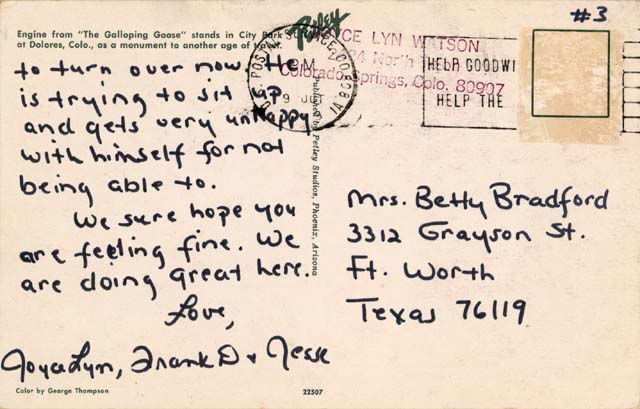 #3
Engine from "The Galloping Goose" stands in City Park
at Dolores, Colo., as a monument to another age of travel.
Petley
CE LYN WATSON
Colorado Springs, Colo. 80907
U.S. POSTAL
HELP GOODWI
HELP THE
to turn over now. He
is trying to sit up
and gets very unhappy
with himself for not
being able to.
We sure hope you
are feeling fine. We
are doing great here.
Love,
JoyceLyn, Frank D & Jesse
Published by Petley Studios, Phoenix, Arizona
Mrs. Betty Bradford
3312 Grayson St.
Ft. Worth
Texas 76119
Color by George Thompson
22507